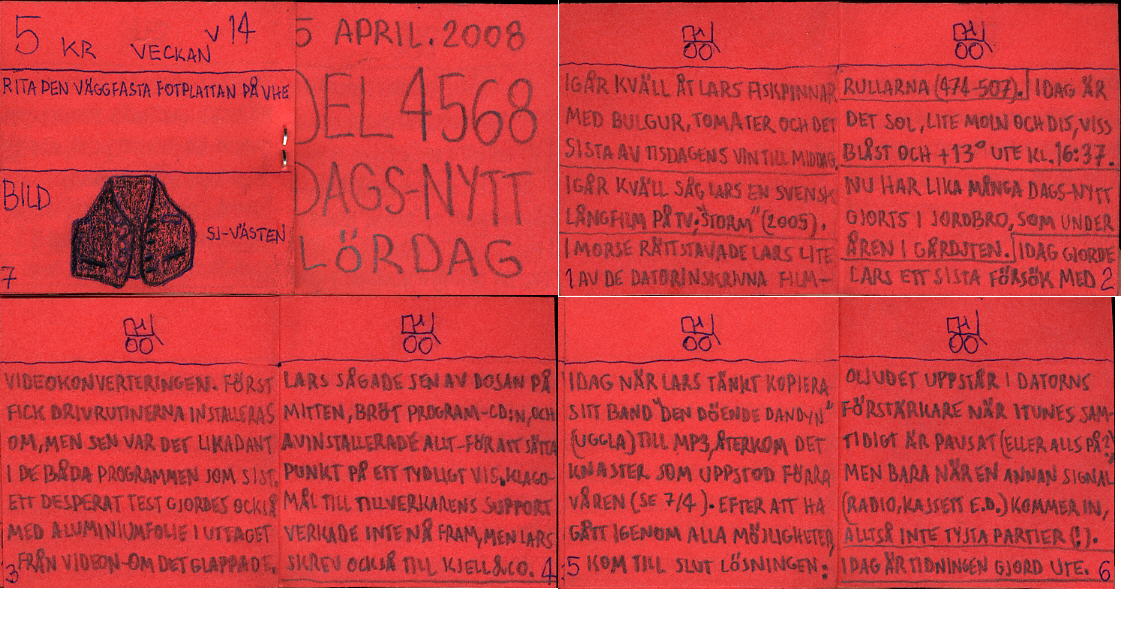 5 KR VECKAN V 14
RITA DEN VÄGGFASTA FOTPLATTAN PÅ VHE
BILD
SJ-VÄSTEN
7
5 APRIL. 2008
DEL 4568
DAGS-NYTT
LÖRDAG
IGÅR KVÄLL ÅT LARS FISKPINNAR
MED BULGUR, TOMATER OCH DET
SISTA AV TISDAGENS VIN TILL MIDDAG.
IGÅR KVÄLL SÅG LARS EN SVENSK
LÅNGFILM PÅ TV; "STORM" (2005).
I MORSE RÄTTSTAVADE LARS LITE
1 AV DE DATORINSKRIVNA FILM-
RULLARNA (474-507). IDAG ÄR
DET SOL, LITE MOLN OCH DIS, VISS
BLÅST OCH +13° UTE KL. 16:37.
NU HAR LIKA MÅNGA DAGS-NYTT
GJORTS I JORDBRO, SOM UNDER
ÅREN I GÅRDSTEN. IDAG GJORDE
LARS ETT SISTA FÖRSÖK MED 2
VIDEOKONVERTERINGEN. FÖRST
FICK DRIVRUTINERNA INSTALLERAS
OM, MEN SEN VAR DET LIKADANT
I DE BÅDA PROGRAMMEN SOM SIST.
ETT DESPERAT TEST GJORDES OCKSÅ
MED ALUMINIUMFOLIE I UTTAGET
3 FRÅN VIDEON-OM DET GLAPPADE.
LARS SÅGADE SEN AV DOSAN PÅ
MITTEN, BRÖT PROGRAM-CD:N, OCH
AVINSTALLERADE ALLT-FÖR ATT SÄTTA
PUNKT PÅ ETT TYDLIGT VIS. KLAGO-
MÅL TILL TILLVERKARENS SUPPORT
VERKADE INTE NÅ FRAM, MEN LARS
SKREV OCKSÅ TILL KJELL&CO. 4
IDAG NÄR LARS TÄNKT KOPIERA
SITT BAND "DEN DÖENDE DANDYN"
(UGGLA) TILL MP3, ÅTERKOM DET
KNASTER SOM UPPSTOD FÖRRA
VÅREN (SE 7/4). EFTER ATT HA
GÅTT IGENOM ALLA MÖJLIGHETER,
5 KOM TILL SLUT LÖSNINGEN:
OLJUDET UPPSTÅR I DATORNS
FÖRSTÄRKARE NÄR ITUNES SAM-
TIDIGT ÄR PAUSAT (ELLER ALLS PÅ?),
MEN BARA NÄR EN ANNAN SIGNAL
(RADIO, KASSETT E.D.) KOMMER IN,
ALLTSÅ INTE TYSTA PARTIER (!).
IDAG ÄR TIDNINGEN GJORD UTE. 6